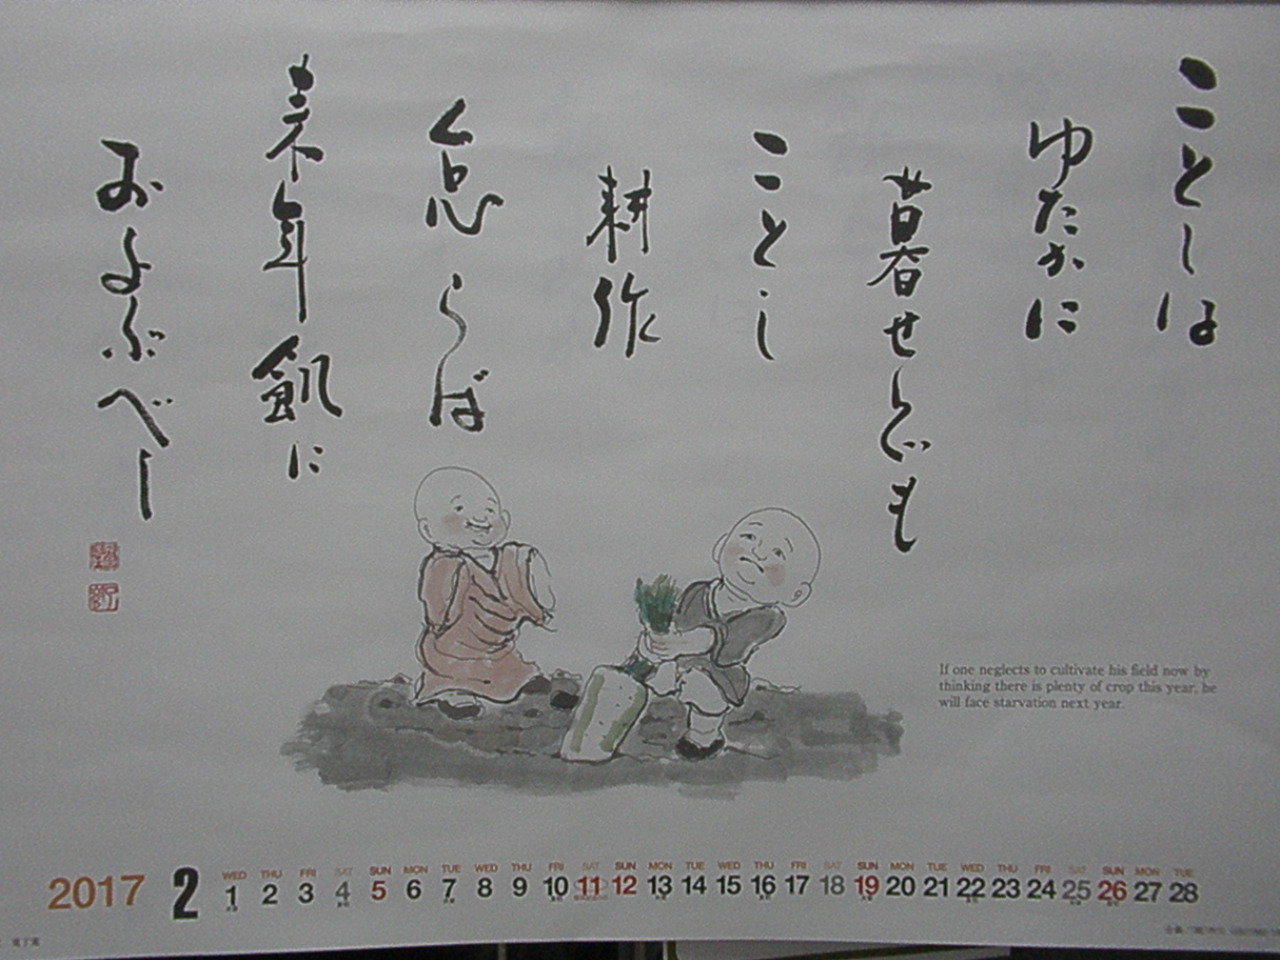 ことしは
ゆたかに
暮せしども
ことし
耕作
怠らば
来年飢に
およぶべし
If one neglects to cultivate his field now by
thinking there is plenty of crop this year, he
will face starvation next year.
2017 2
WED THU FRI SAT SUN MON TUE WED THU FRI SAT SUN MON TUE WED THU FRI SAT SUN MON TUE WED THU FRI SAT SUN MON TUE
1 2 3 4 5 6 7 8 9 10 11 12 13 14 15 16 17 18 19 20 21 22 23 24 25 26 27 28